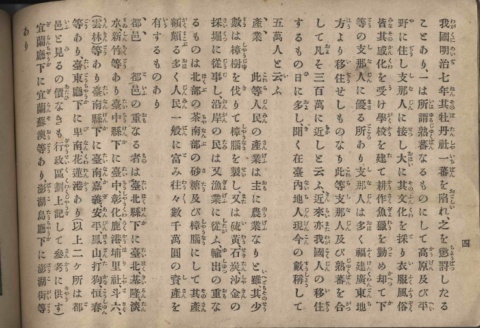 四
我國明治七年其牡丹社一蕃を陷れ、之を懲罰したる
ことあり、一は所謂熟蕃なるものにして高原及び平
野に住し支那人に接し大に其文化を採り衣服風俗
皆其感化を受け學校を建て耕作魚獵を勤め却て下
等の支那人に優る所あり支那人は多く福建廣東地
方より移住せしものなり此等支那人及び熟蕃を合
して凡を三百萬に近しと云ふ、近來亦我國人の移住
するもの日に多し、聞く在臺內地人現今の數稱して
五萬人と云ふ
產業 此等人民の產業は主に農業なりと雖其少
數は樟樹を伐りて樟腦を製し、又は硫黃石炭沙金の
採掘に從事し、沿岸の民は又漁業に從ふ、輸出の重な
るものは北部の茶南部の砂糖及び樟腦にして其產
額頗る多く人民一般に富み往々數千萬圓の資產を
有するものあり
都邑 都邑の重なる者は臺北縣下に臺北基隆淡
水新竹等あり臺中縣下に臺中彰化鹿港埔里社斗六
(雲林)等あり臺南縣下に臺南嘉義安平鳳山打狗恒春
等あり、臺東廳下に卑南花蓮港あり(以上二ヶ所は都
邑と見るの價なきも行政區劃上記して參考に供す)
宜蘭廳下に宜蘭蘇澳等あり、澎湖島廳下に澎湖街等
あり